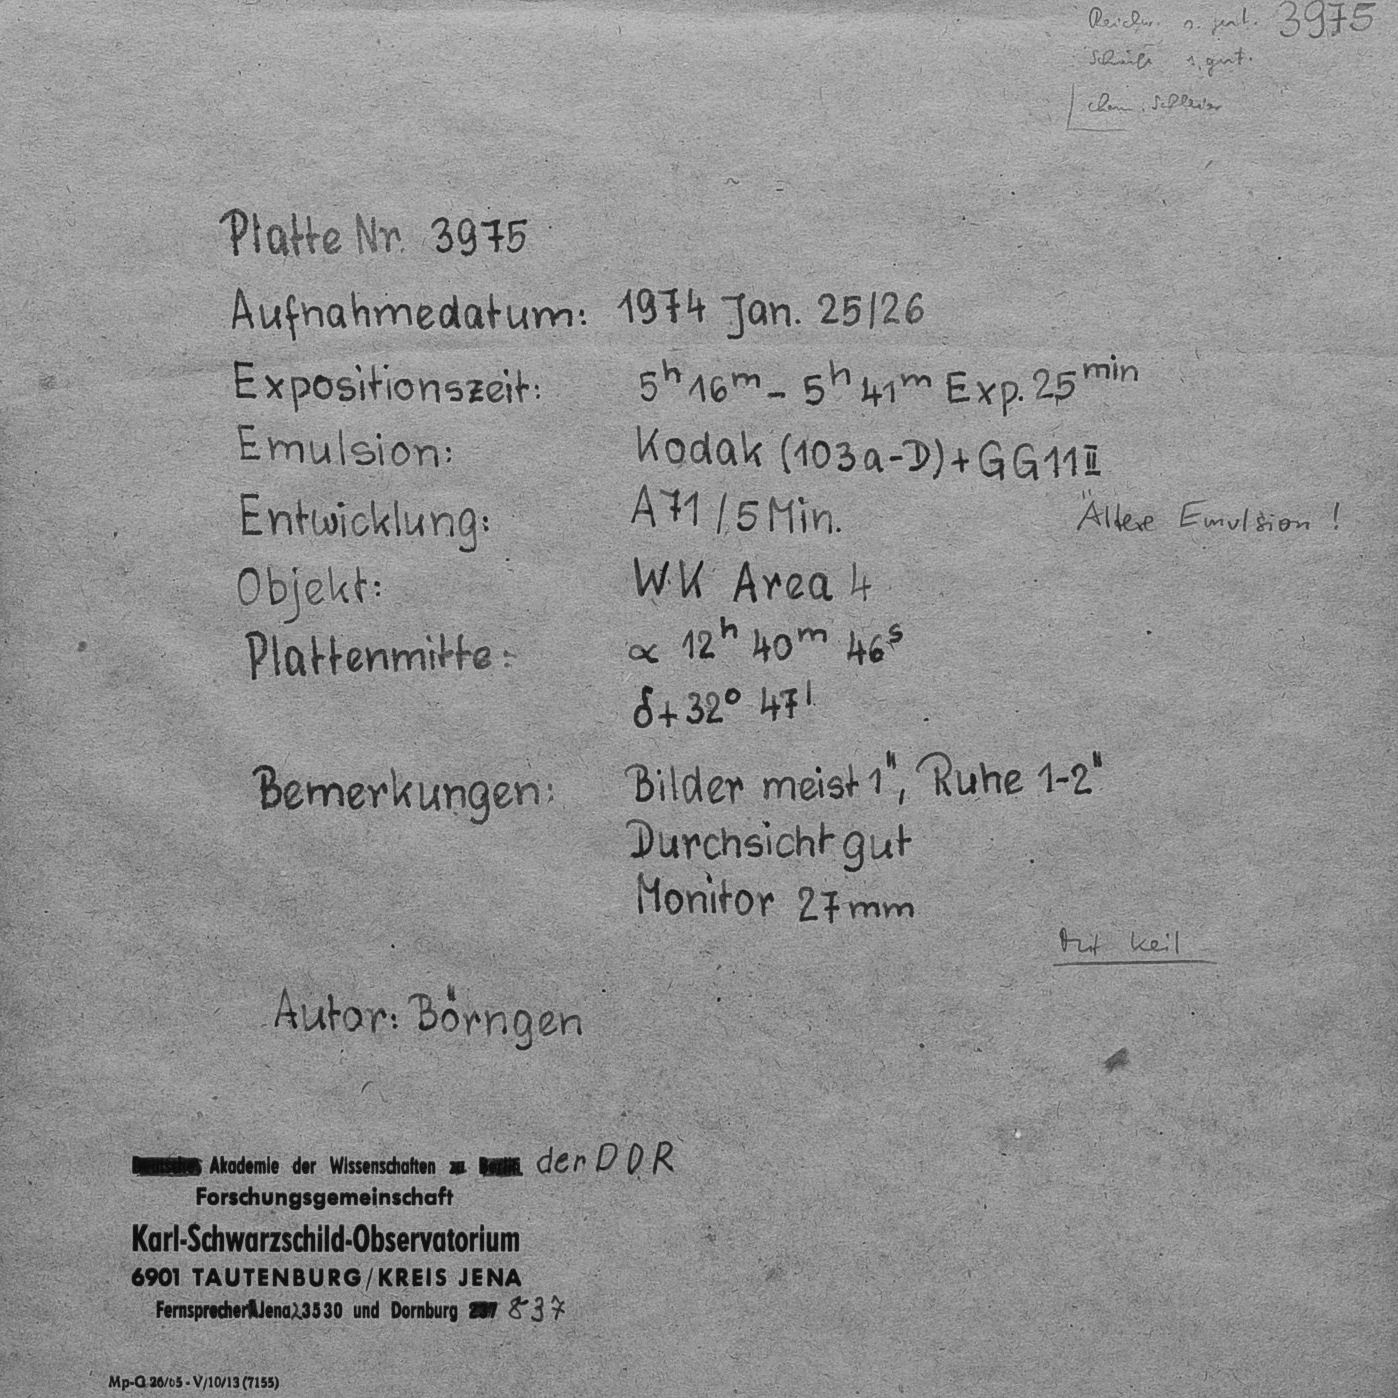 Reichw. s. gut. 3975
Schärfe s. gut.
chem. Schleier
Platte Nr. 3975
Aufnahmedatum: 1974 Jan. 25/26
Expositionszeit: 5h 16m - 5h 41m Exp. 25min
Emulsion: Kodak (103a-D)+GG11II
Entwicklung: A71/5Min. Ältere Emulsion!
Objekt: WK Area 4
Plattenmitte: α 12h 40m 46s
δ+32° 47'
Bemerkungen: Bilder meist 1", Ruhe 1-2"
Durchsicht gut
Monitor 27mm
Mit Keil
Autor: Börngen
Deutsches Akademie der Wissenschaften zu Berlin der DDR
Forschungsgemeinschaft
Karl-Schwarzschild-Observatorium
6901 TAUTENBURG/KREIS JENA
Fernsprecher Jena 23530 und Dornburg 237 837
Mp-G 26/65-V/10/13 (7155)